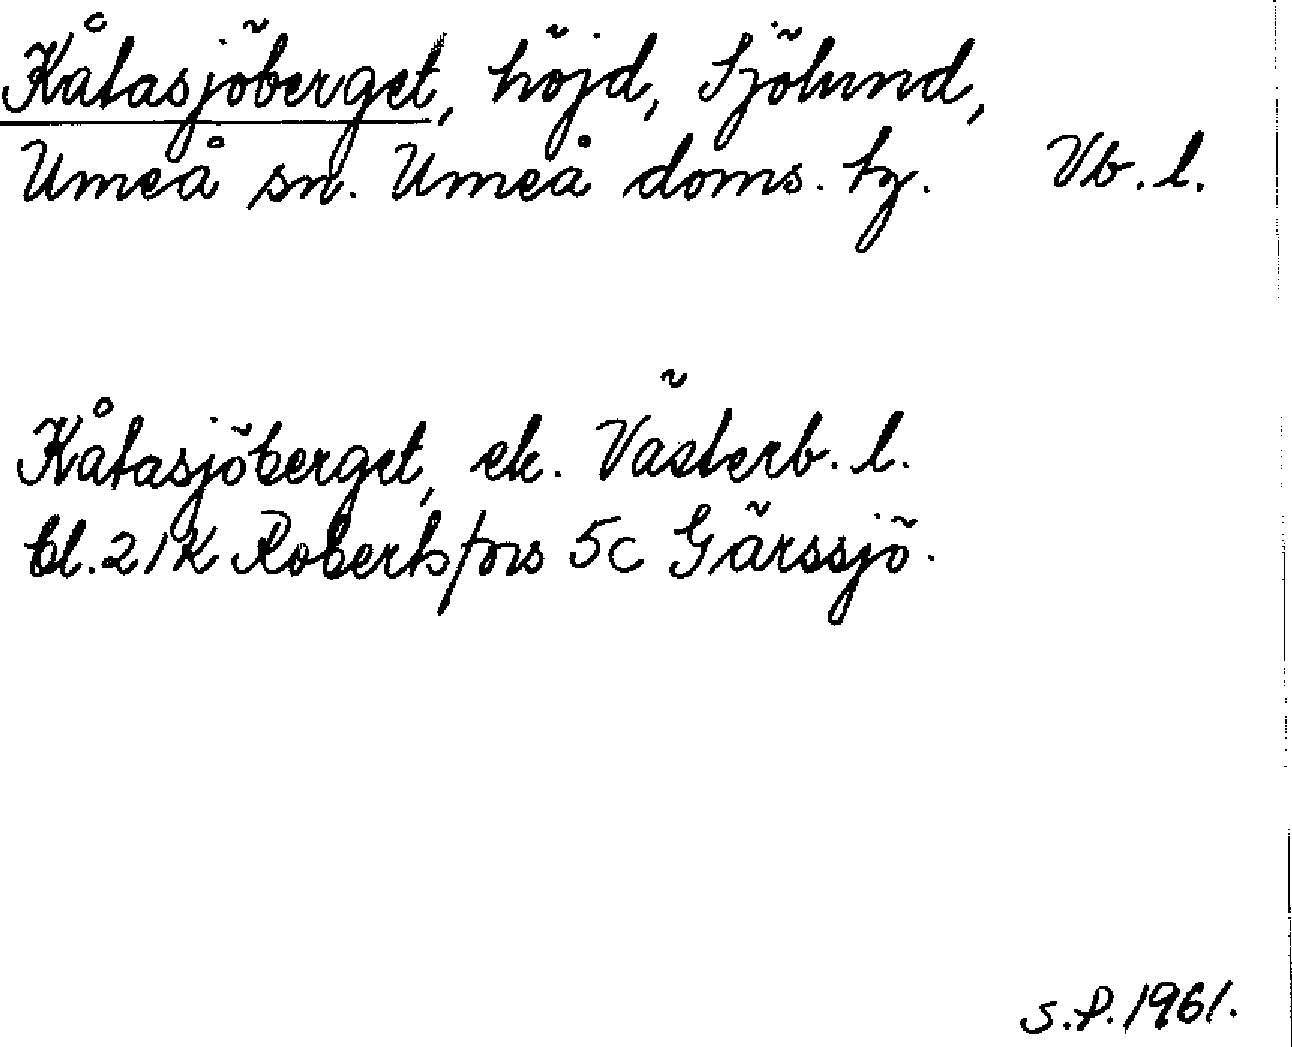 Kåtasjöberget, höjd, Sjölund,
Umeå sn. Umeå doms. tg. Vb. l.
Kåtasjöberget, ek. Västerb. l.
bl. 21K Robertsfors 5c Gärssjö.
S.P. 1961.